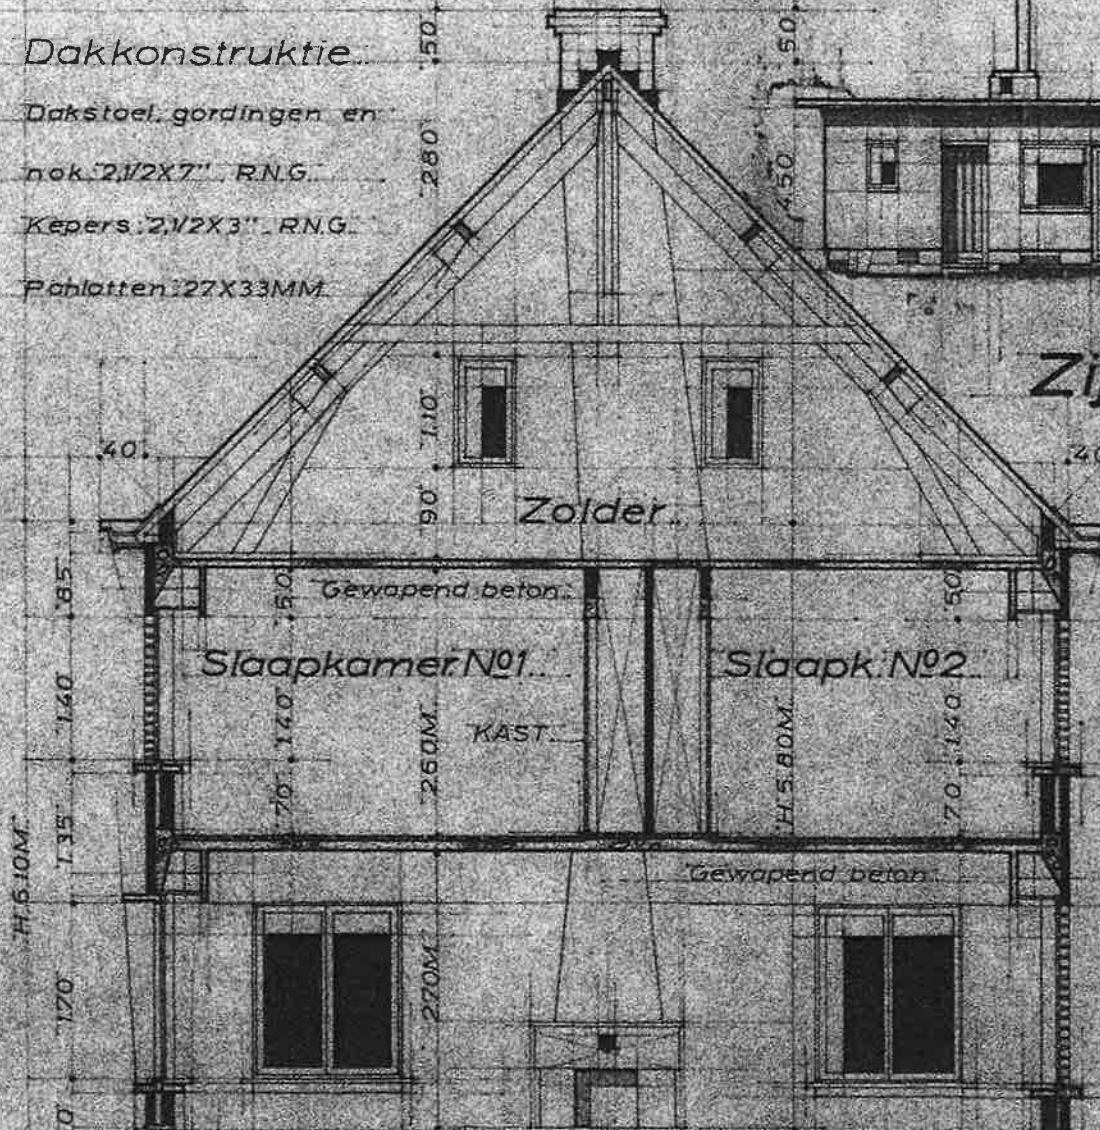 Dakkonstruktie.
Dakstoel, gordingen en
nok: 2,1/2X7" R.N.G.
Kepers: 2,1/2X3" R.N.G.
Panlatten: 27X33MM.
50
50
280
450
Zij
40
110
40
90
Zolder.
85
50
Gewapend beton.
50
Slaapkamer. Nº1.
Slaapk. Nº2
140
140
KAST.
260M.
H 5.80M.
140
70
70
135
H. 610M.
Gewapend beton.
170
270M.